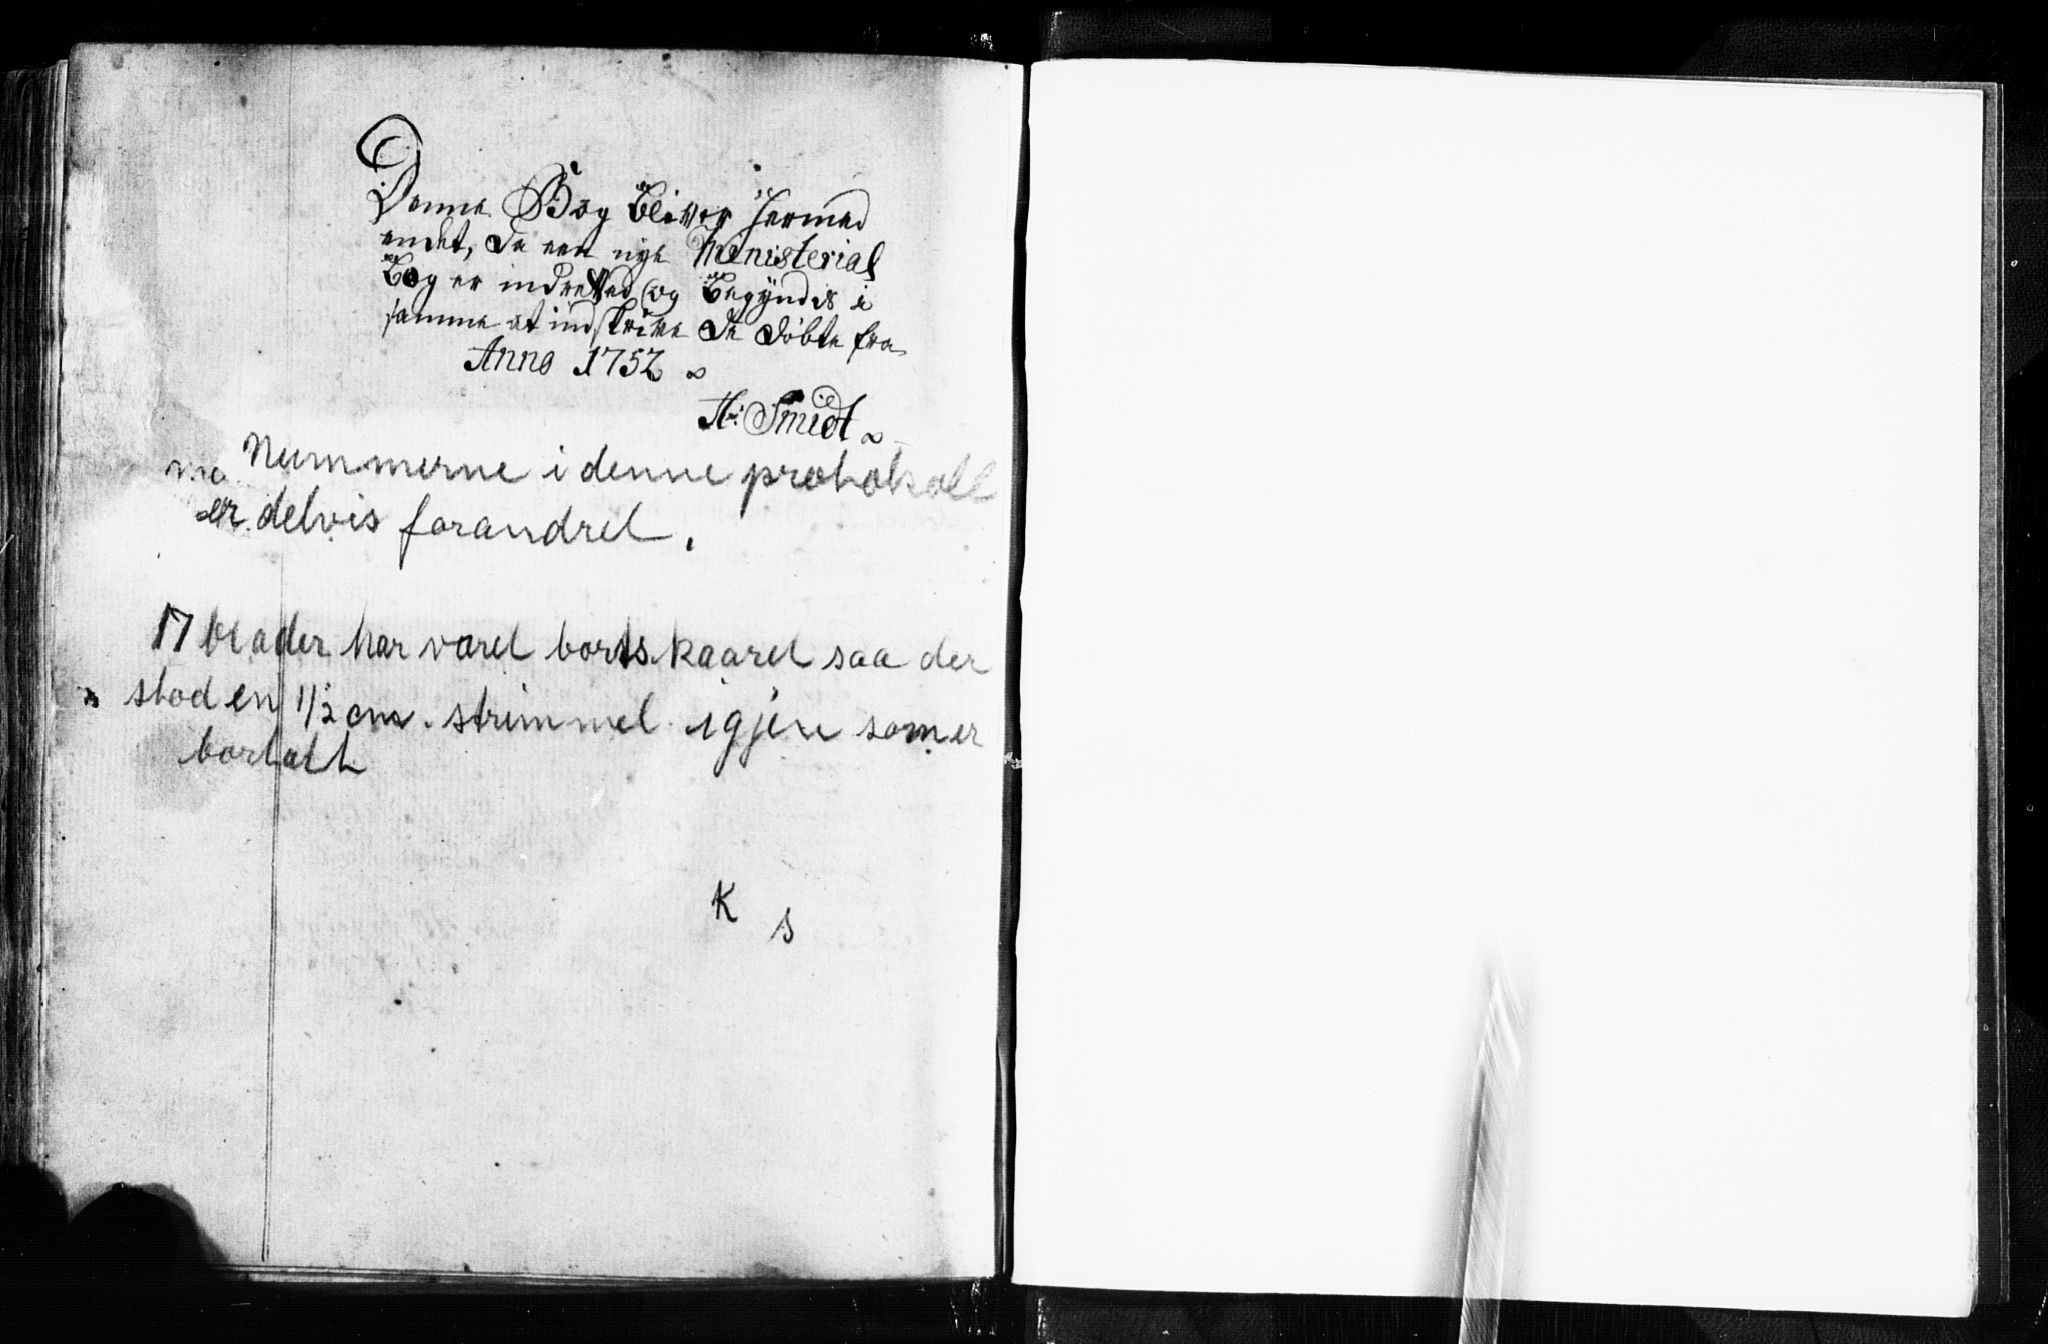 Denne Bog bliver hermed
endet, da een nye Ministerial
Bog er indretted og begyndis i
samme at indskrive de døbte fra
Anno 1752
H: Smidt
Nummerne i denne protokoll
er delvis forandret.
17 blader har vøret bortskaaret saa der
stod en 1 1/2 cm. strimmel igjen som er
bortatt
K
s